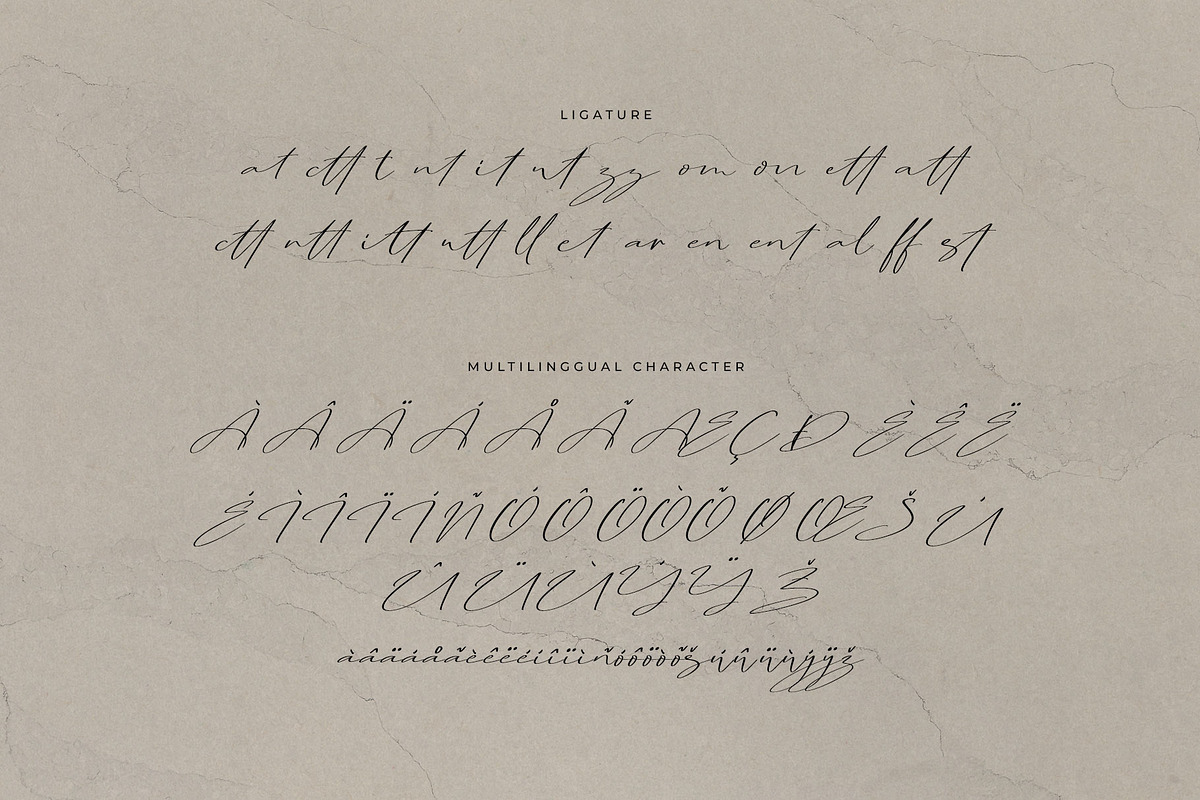 LIGATURE
at ctt t nt it ut zy om on ett att
ctt ntt itt utt ll et ar en ent al ff st
MULTILINGGUAL CHARACTER
À Â Ä Á Å Ã Æ Ç Ð È Ê Ë
É Ì Î Ï Í Ñ Ó Ô Ö Ò Õ Ø Œ Š Ú
Û Ü Ù Ý Ÿ Ž
àâäáåãèêëéíîïìñóôöòõšúûüùýÿž